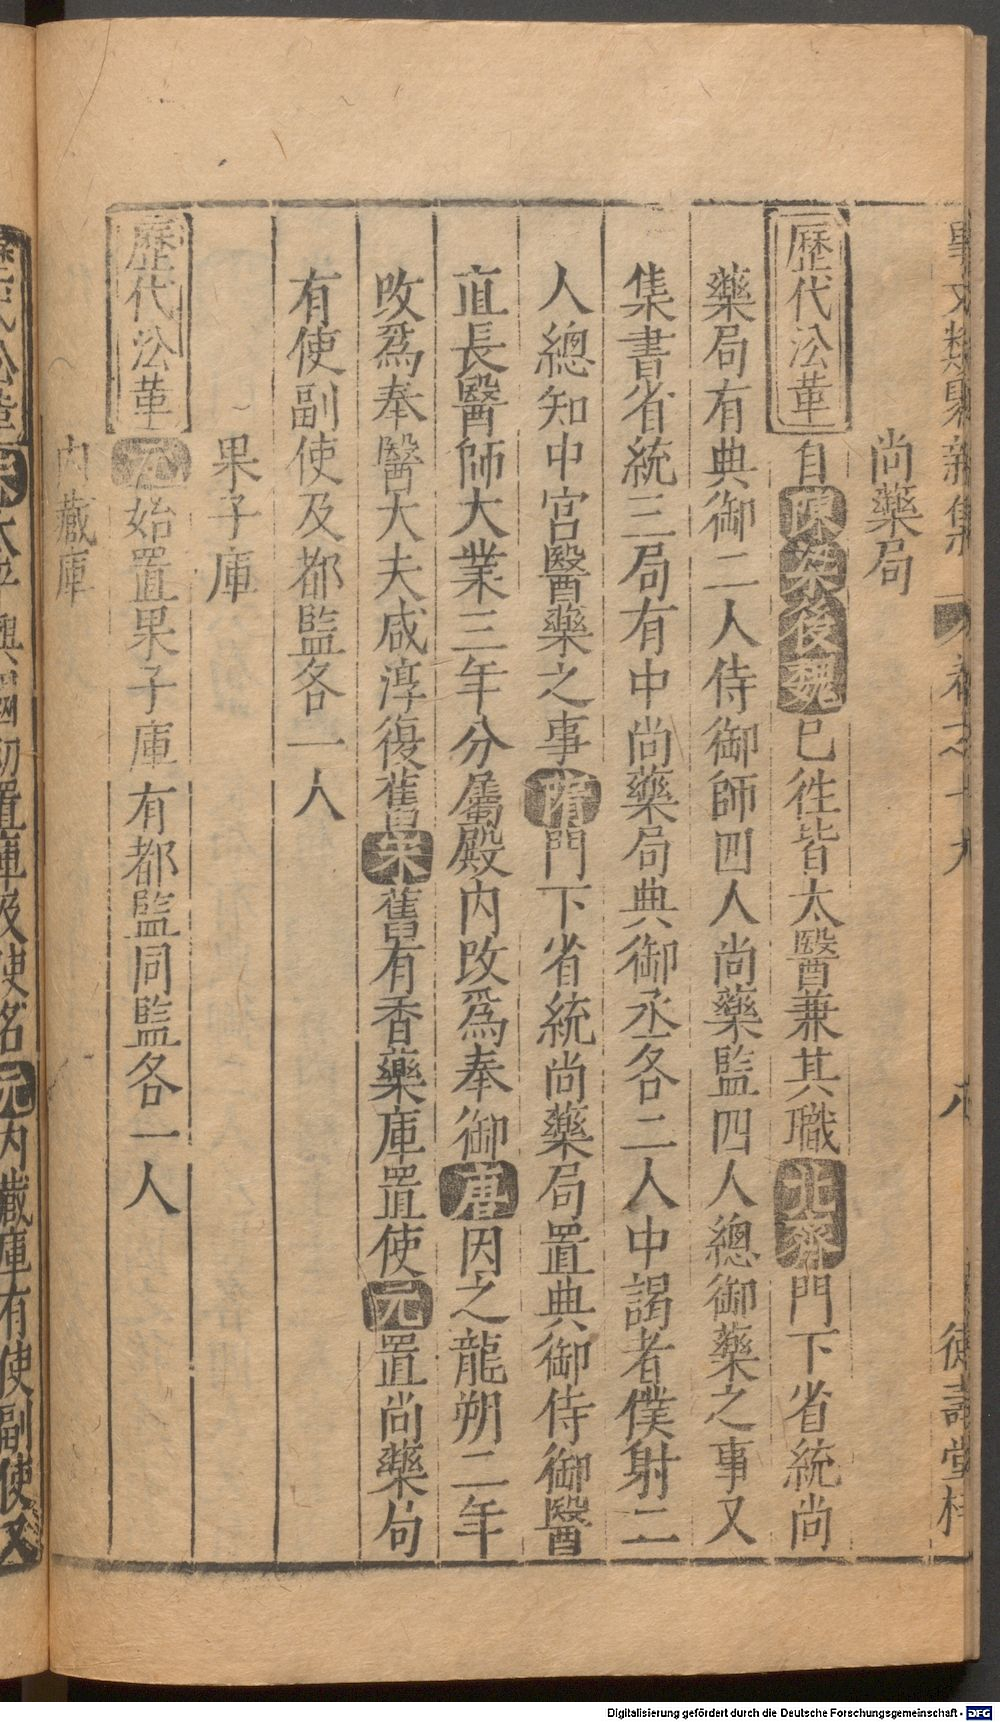 事文類聚新集 卷之十九 八 德壽堂梓
尚藥局
歷代㳂革 自陳梁後魏已徃皆太醫兼其職北齊門下省統尚
藥局有典御二人侍御師四人尚藥監四人總御藥之事又
集書省統三局有中尚藥局典御丞各二人中謁者僕射二
人總知中宮醫藥之事隋門下省統尚藥局置典御侍御醫
直長醫師大業三年分屬殿內改爲奉御唐因之龍朔二年
改爲奉醫大夫咸淳復舊宋舊有香藥庫置使元置尚藥局
有使副使及都監各一人
果子庫
歷代㳂革 元始置果子庫有都監同監各一人
內藏庫
歷代㳂革 宋太平興國初置庫及使名元內藏庫有使副使又
Digitalisierung gefördert durch die Deutsche Forschungsgemeinschaft - DFG